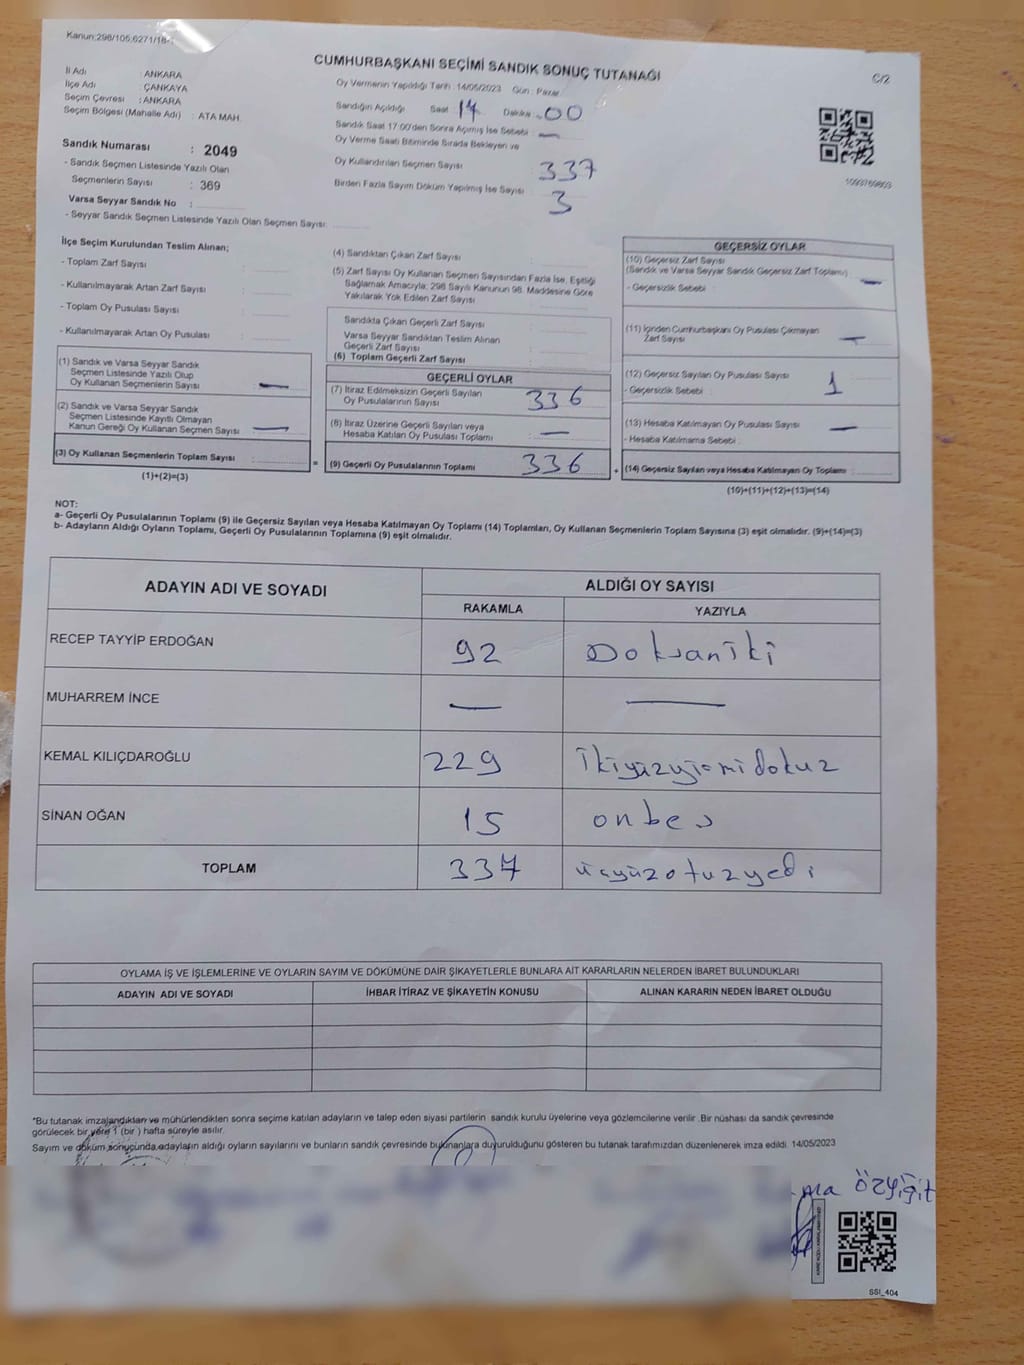 Kanun:298/105,6271/18-1
CUMHURBAŞKANI SEÇİMİ SANDIK SONUÇ TUTANAĞI
C/2
İl Adı : ANKARA
İlçe Adı : ÇANKAYA
Seçim Çevresi : ANKARA
Seçim Bölgesi (Mahalle Adı) : ATA MAH.
Sandık Numarası : 2049
- Sandık Seçmen Listesinde Yazılı Olan
Seçmenlerin Sayısı : 369
Varsa Seyyar Sandık No :
- Seyyar Sandık Seçmen Listesinde Yazılı Olan Seçmen Sayısı:
Oy Vermenin Yapıldığı Tarih : 14/05/2023 Gün : Pazar
Sandığın Açıldığı Saat 17 Dakika 00
Sandık Saat 17:00'den Sonra Açılmış İse Sebebi : —
Oy Verme Saati Bitiminde Sırada Bekleyen ve
Oy Kullandırılan Seçmen Sayısı : 337
Birden Fazla Sayım Döküm Yapılmış İse Sayısı : 3
1093769803
İlçe Seçim Kurulundan Teslim Alınan;
- Toplam Zarf Sayısı :
- Kullanılmayarak Artan Zarf Sayısı :
- Toplam Oy Pusulası Sayısı :
- Kullanılmayarak Artan Oy Pusulası :
(1) Sandık ve Varsa Seyyar Sandık
Seçmen Listesinde Yazılı Olup
Oy Kullanan Seçmenlerin Sayısı : —
(2) Sandık ve Varsa Seyyar Sandık
Seçmen Listesinde Kayıtlı Olmayan
Kanun Gereği Oy Kullanan Seçmen Sayısı : —
(3) Oy Kullanan Seçmenlerin Toplam Sayısı :
(1)+(2)=(3)
(4) Sandıktan Çıkan Zarf Sayısı :
(5) Zarf Sayısı Oy Kullanan Seçmen Sayısından Fazla İse, Eşitliği
Sağlamak Amacıyla; 298 Sayılı Kanunun 98. Maddesine Göre
Yakılarak Yok Edilen Zarf Sayısı :
Sandıkta Çıkan Geçerli Zarf Sayısı :
Varsa Seyyar Sandıktan Teslim Alınan
Geçerli Zarf Sayısı :
(6) Toplam Geçerli Zarf Sayısı :
=
GEÇERLİ OYLAR
(7) İtiraz Edilmeksizin Geçerli Sayılan
Oy Pusulalarının Sayısı : 336
(8) İtiraz Üzerine Geçerli Sayılan veya
Hesaba Katılan Oy Pusulası Toplamı : —
(9) Geçerli Oy Pusulalarının Toplamı : 336
+
GEÇERSİZ OYLAR
(10) Geçersiz Zarf Sayısı
(Sandık ve Varsa Seyyar Sandık Geçersiz Zarf Toplamı) : —
- Geçersizlik Sebebi :
(11) İçinden Cumhurbaşkanı Oy Pusulası Çıkmayan
Zarf Sayısı : —
(12) Geçersiz Sayılan Oy Pusulası Sayısı : 1
- Geçersizlik Sebebi :
(13) Hesaba Katılmayan Oy Pusulası Sayısı : —
- Hesaba Katılmama Sebebi :
(14) Geçersiz Sayılan veya Hesaba Katılmayan Oy Toplamı :
(10)+(11)+(12)+(13)=(14)
NOT:
a- Geçerli Oy Pusulalarının Toplamı (9) ile Geçersiz Sayılan veya Hesaba Katılmayan Oy Toplamı (14) Toplamları, Oy Kullanan Seçmenlerin Toplam Sayısına (3) eşit olmalıdır. (9)+(14)=(3)
b- Adayların Aldığı Oyların Toplamı, Geçerli Oy Pusulalarının Toplamına (9) eşit olmalıdır.
ADAYIN ADI VE SOYADI ALDIĞI OY SAYISI
RAKAMLA YAZIYLA
RECEP TAYYİP ERDOĞAN 92 Doksaniki
MUHARREM İNCE — —
KEMAL KILIÇDAROĞLU 229 ikiyüzyirmidokuz
SİNAN OĞAN 15 onbeş
TOPLAM 337 üçyüzotuzyedi
OYLAMA İŞ VE İŞLEMLERİNE VE OYLARIN SAYIM VE DÖKÜMÜNE DAİR ŞİKAYETLERLE BUNLARA AİT KARARLARIN NELERDEN İBARET BULUNDUKLARI
ADAYIN ADI VE SOYADI İHBAR İTİRAZ VE ŞİKAYETİN KONUSU ALINAN KARARIN NEDEN İBARET OLDUĞU
*Bu tutanak imzalandıktan ve mühürlendikten sonra seçime katılan adayların ve talep eden siyasi partilerin sandık kurulu üyelerine veya gözlemcilerine verilir .Bir nüshası da sandık çevresinde
görülecek bir yere 1 (bir ) hafta süreyle asılır.
Sayım ve döküm sonucunda adayların aldığı oyların sayılarını ve bunların sandık çevresinde bulunanlara duyurulduğunu gösteren bu tutanak tarafımızdan düzenlenerek imza edildi. 14/05/2023
özyiğit
SSİ_404